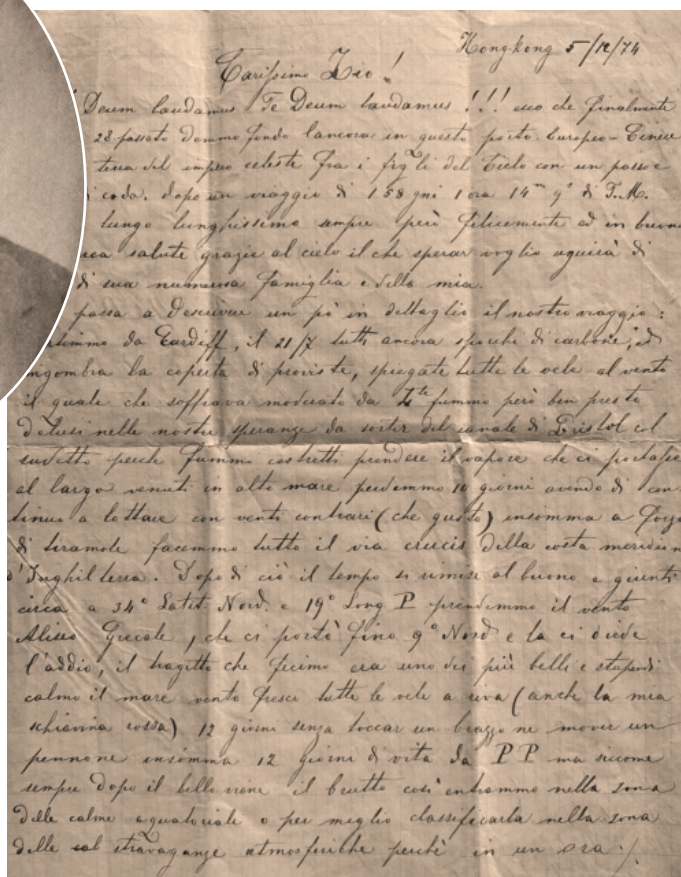 Hongkong 5/12/74
Carissimo Zio!
Deum laudamus Te Deum laudamus!!! ecco che finalmente
28 passato dammo fondo l'ancora in questo porto Europeo-Cinese
terra del impero celeste fra i figli del Cielo con un passo e
coda. dopo un viaggio di 138 gni 1 ora 14m di T.M.
lungo lunghissimo sempre però felicemente ed in buona
salute grazie al cielo il che sperar voglio di
di sua numerosa famiglia e della mia.
passo a descrivere un pò in dettaglio il nostro viaggio:
da Cardiff, il 21/7 tutti ancora sporchi di carbone, ed
ingombra la coperta di proviste, spiegate tutte le vele al vento
il quale che soffiava moderato da fummo però ben presto
delusi nelle nostre speranze da sortir del canale di Bristol col
sudetto perche fummo costretti prendere il vapore che ci portasse
al largo venuti in alto mare perdemmo 10 giorni avendo di con
tinuo a lottare con venti contrari (che gusto) insomma a forza
di tiramole facemmo tutto il via crucis della costa meridion
d'Inghilterra. Dopo di ciò il tempo si rimise al buono e giunti
circa a 34° Latit. Nord. e 19° Long P prendemmo il vento
Aliseo Grecale, che ci portò fino 9° Nord e la ci diede
l'addio, il tragitto che fecimo era uno dei più belli e stupendi
calmo il mare vento fresco tutte le vele a riva (anche la mia
schiavina rossa) 12 giorni senza toccar un brazzo ne mover un
pennone insomma 12 giorni di vita da P P ma siccome
sempre dopo il bello viene il brutto così entrammo nella zona
delle calme equatoriale o per meglio classificarla nella zona
delle stravaganze atmosferiche perchè in un ora ./.